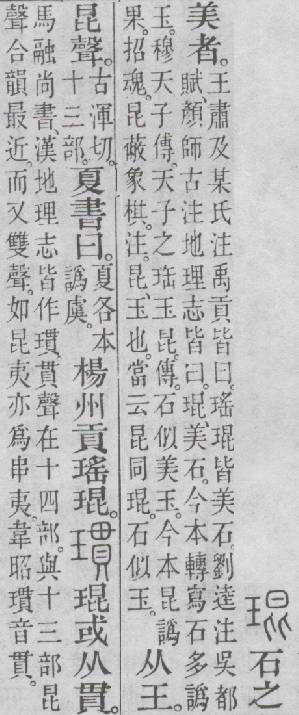 琨 石之
美者。王肅及某氏注禹貢皆曰。瑤琨皆美石。劉逵注吳都
賦、顏師古注地理志皆曰。琨、美石。今本轉寫石多譌
玉。穆天子傳。天子之珤玉昆。傳。石似美玉。今本昆譌
果。招魂。昆蔽象棋。注。昆、玉也。當云昆同琨。石似玉。从王。
昆聲。古渾切。十三部。夏書曰。夏各本譌虞。楊州貢瑤琨。瑻 琨或从貫。
馬融尚書漢地理志皆作瑻。貫聲在十四部。與十三部昆
聲合韻最近。而又雙聲。如昆夷亦爲串夷。韋昭瑻音貫。